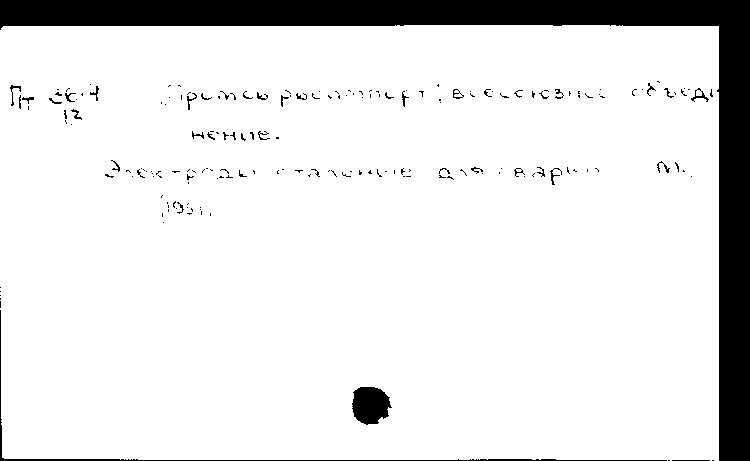 Пт 36-4 "Промсырьеимпорт", всесоюзное объеди-
12
нение.
Электроды стальные для сварки М.,
[195